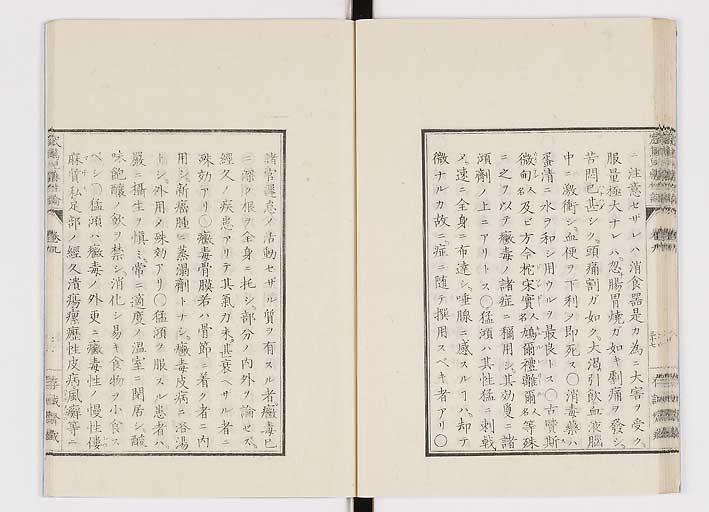 ニ注意セザレハ消食器是カ為ニ大害ヲ受ク、
服量極大ナレハ、忽腸胃燒ガ如キ劇痛ヲ發シ、
苦悶已甚シク、頭痛割ガ如ク、大渇引飲血液腦
中ニ激衝シ、血便ヲ下利ノ即死ス〇消毒藥ハ
蛋清ニ水ヲ和シ用ウルヲ最良トス〇古
微甸名及ビ方今柁宋實名鳩爾禮離爾名等殊
ニ之ヲ以テ黴毒ノ諸症ニ稱用シ、其効夐ニ諸
澒劑ノ上ニアリトス〇猛澒ハ其性猛ニ刺戟
メ、速ニ全身ニ布達シ、唾腺ニ感スルヿハ、却テ
微ナルカ故ニ症ニ隨テ撰用スベキ者アリ〇
諸官運怠ノ活動セザル質ヲ有スル者、黴毒已
ニ深ク根ヲ全身ニ托シ、部分ノ内外ヲ論セズ、
經久ノ疾患アリテ其氣力未甚衰ヘザル者ニ
殊効アリ〇黴毒骨膜若ハ骨節ニ着ク者ニ内
用シ、新腫ニ蒸溻劑トナシ、黴毒皮病ニ浴湯
トシ、外用メ殊効アリ〇猛澒ヲ服スル患者ハ、
嚴ニ攝生ヲ愼ミ、常ニ適度ノ温室ニ閑居シ、酸
味飽釀ノ飲ヲ禁シ、消化シ易キ食物ヲ小食ス
ベシ〇猛澒ハ黴毒ノ外更ニ黴毒性ノ慢性僂
麻質私足部ノ經久潰瘍瘰癧性皮病風癬等ニ